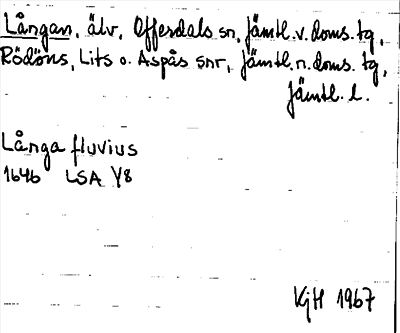 Långan, älv, Offerdals sn, Jämtl. v. doms. tg,
Rödöns, Lits o. Aspås snr, Jämtl. n. doms. tg,
Jämtl. l.
Långa fluvius
1646 LSA Y8
KjH 1967